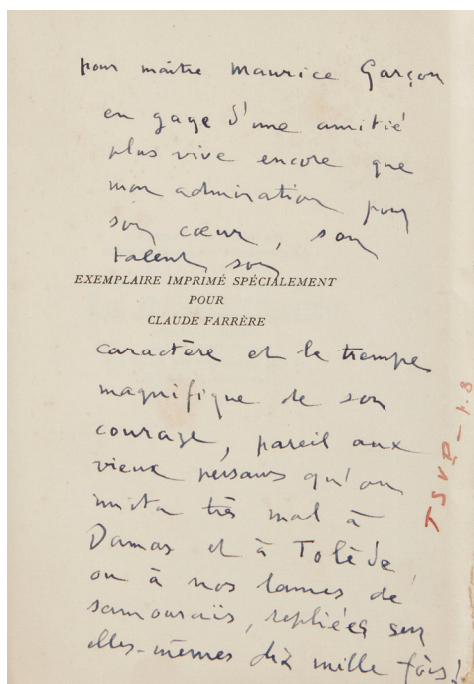 pour maître Maurice Garçon
en gage d'une amitié
plus vive encore que
mon admiration pour
son cœur, son
talent, son
EXEMPLAIRE IMPRIMÉ SPÉCIALEMENT
POUR
CLAUDE FARRÈRE
caractère et la trempe
magnifique de son
courage, pareil aux
vieux persans qu'on
imita très mal à
Damas et à Tolède,
ou à nos lames de
samouraïs, repliées sur
elles-mêmes dix mille fois!
TSVP